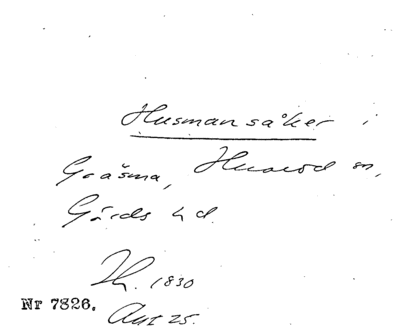 Husmansåker i
Graåsma, Huaröd sn,
Gärds hd.
Th. 1830
Nr 7826.
Aut 25.